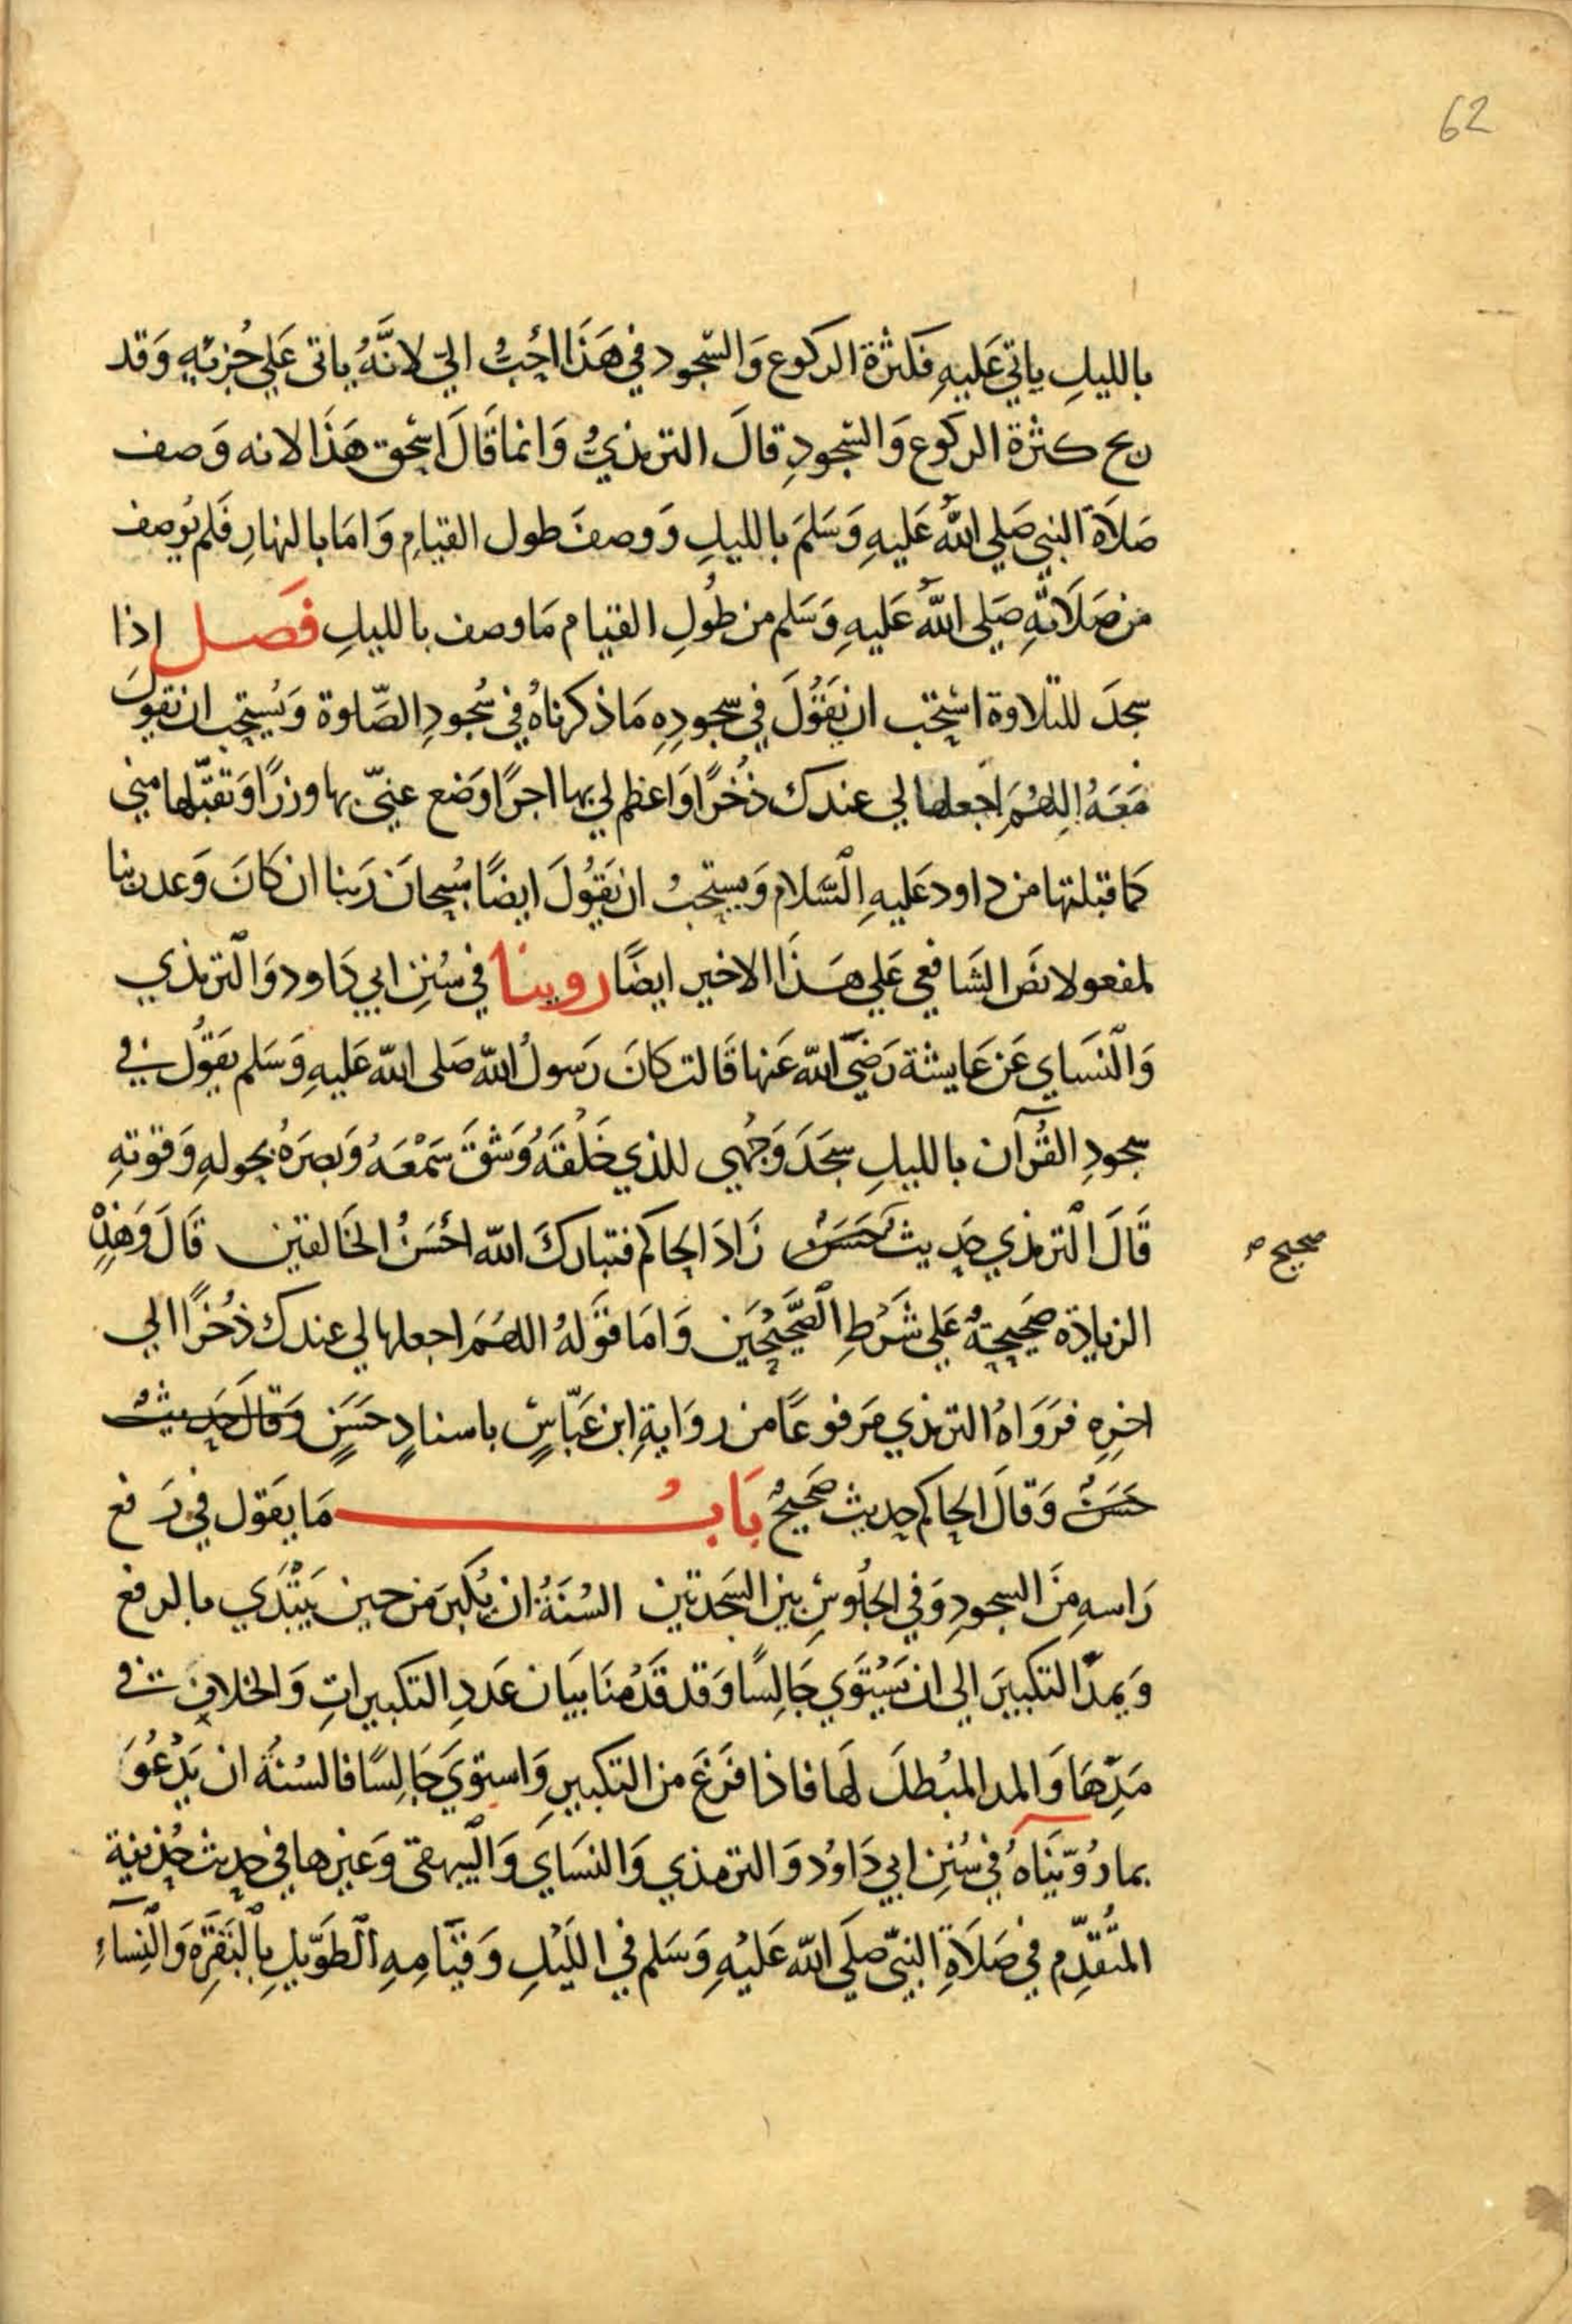 62
بالليلِ ياتي عَليهِ فكثرة الركوع وَالسّجود في هَذَا احَبُّ اليّ لانَّهُ ياتى عَلي حُزبّهِ وَقد
ربح كثرة الركوع وَالسّجودِ قالَ الترمذيُّ وَانما قَالَ اسْحٰق هَذَا لانه وَصف
صَلاَة النبي صَلي اللّهُ عَليهِ وَسَلمَ بالليلِ وَوصفَ طول القيامِ وَامَا بالنهارِ فَلم يُوصف
من صَلَاتهِ صَلي اللّهُ عَليهِ وَسَلم من طُولِ القيام مَا وصف بالليلِ فَصل اذا
سجدَ للتلاوة اسْتحب ان يَقُولَ في سجودِهِ مَا ذكرناهُ في سُجودِ الصّلوة وَيُستحب ان يَقولَ
مَعَهُ اللهُمَ اجعلها لي عندك ذُخرًا وَاعظم لي بها اجرًا وَضع عنيّ بها وزرًا وَتقبّلها مني
كما قبلتها من داود عَليهِ السَّلام وَيستحبُ ان يَقُولَ ايضًا سُبحانَ رَبنا ان كَانَ وَعد ربنا
لمفعولا نصَ الشَافعي عَلي هَذَا الاخير ايضًا روينا في سُنن ابي دَاود وَالترمذي
وَالنسَاي عَن عَايشة رَضيَ اللّه عَنها قَالت كَانَ رَسولُ اللّه صَلى اللّه عَليهِ وَسَلم يقَولُ في
سجودِ القُرآن بالليلِ سجَدَ وَجْهي للذي خَلَقَهُ وَشقَ سَمْعَهُ وَبصرَهُ بحولهِ وَقوتهِ
قَالَ الترمذي حَديث حَسَنٌ زَادَ الحاكم فتبارَكَ اللّه احْسَنُ الخَالقين قَالَ وَهَذِهْ
صحيح صح
الزيادة صَحيحَةٌ عَلي شَرْطِ الصَّحيحَين وَامَا قَولهُ اللهُمَ اجعلها لي عندك ذُخرًا الي
اخرِه فرَوَاهُ الترمذي مَرفوعًا من روَايةِ ابن عَبّاسٍ باسنادٍ حَسَنٍ وَقالَ حَديثٌ
حَسَنٌ وَقالَ الحاكم حديث صَحيحٌ بَابُ مَا يقَول في رَفع
رَاسهِ منَ السجودِ وَفي الجلُوسِ بين السَجدتين السُنَةُ ان يُكبرَ من حين يَبْتدَي بالرفع
وَيمدّ التكبيَر الي ان يَسْتَوي جَالِسًا وَقد قَدمْنَا بيَان عَددِ التكبيراتِ وَالخلافِ في
مَدِّهَا وَالمد المبُطلَ لَها فاذا فرَغَ من التكبيرِ وَاستوَيَ جَالِسًا فالسُنةُ ان يَدْعُوَ
بما رُوّينَاهُ في سُنن ابي دَاوُد وَالترمذي وَالنسَاي وَالبيهقى وَغيرها في حديث حُذيفة
المتُقدِّم في صَلَاةِ النبيّ صَلَي اللّه عَليْهِ وَسَلم في الليْلِ وَقيَامِهِ الطَويلِ بالْبَقرَة وَالنِسآءِ